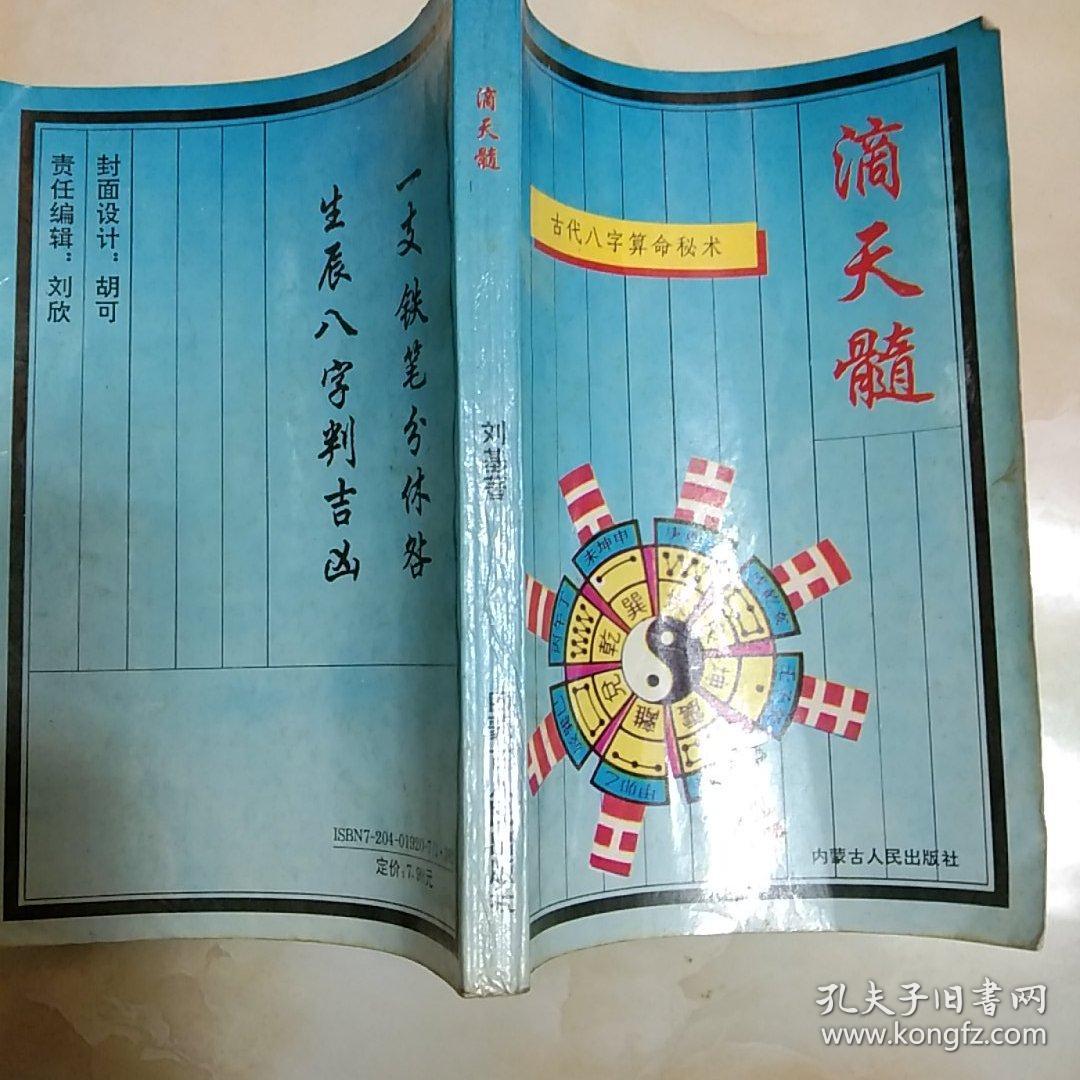 滴天髓
古代八字算命秘术
内蒙古人民出版社
未坤申
丙午丁
甲卯乙
巽
乾
兑
離
坤
滴天髓
刘基著
一支铁笔分休咎
生辰八字判吉凶
封面设计：胡可
责任编辑：刘欣
ISBN7-204-01920-7
定价:7.9
元
孔夫子旧书网
www.kongfz.com